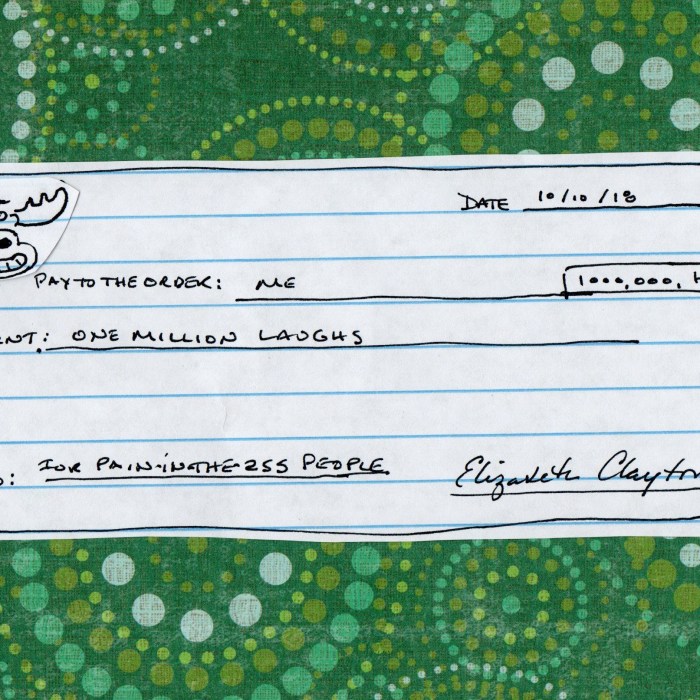 DATE 10/10/18
PAY TO THE ORDER: ME 1000,000, H
NT: ONE MILLION LAUGHS
: FOR PAIN-IN-THE-ASS PEOPLE Elizabeth Clayton